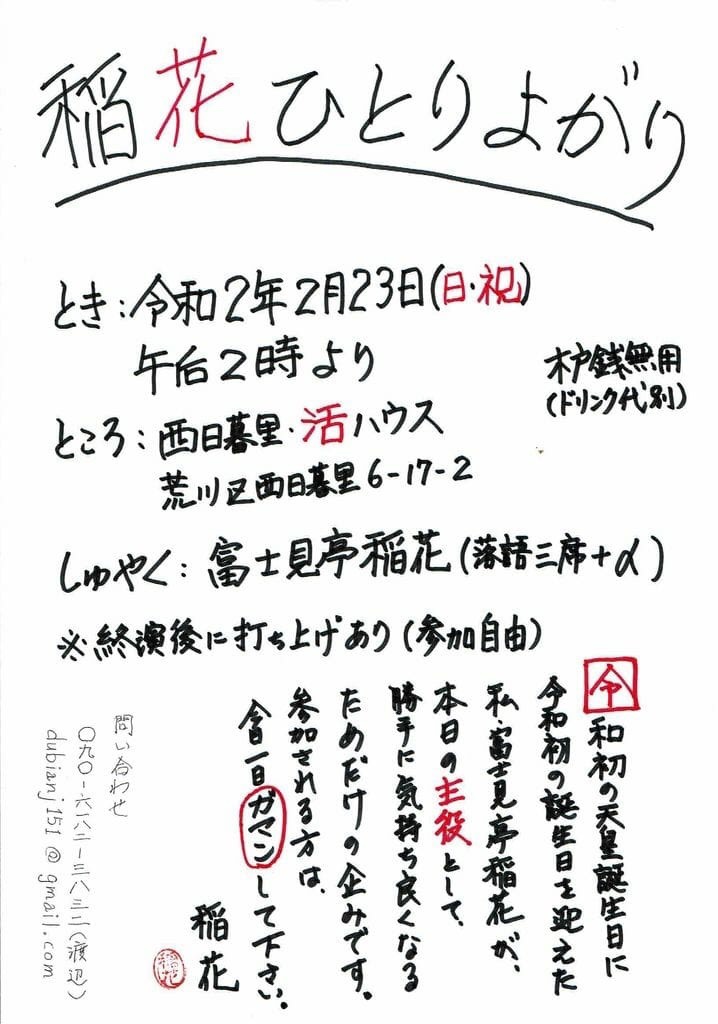 稲花ひとりよがり
とき：令和2年2月23日(日・祝)
午后2時より
木戸銭無用
(ドリンク代別)
ところ：西日暮里・活ハウス
荒川区西日暮里6-17-2
しゅやく：富士見亭稲花(落語三席+α)
※終演後に打ち上げあり(参加自由)
令和初の天皇誕生日に
令和初の誕生日を迎えた
私・富士見亭稲花が、
本日の主役として、
勝手に気持ち良くなる
ためだけの企みです。
参加される方は、
今日一日ガマンして下さい。
稲花
稲花
問い合わせ
〇九〇-六一八二-三八三二(渡辺)
dubianj151@gmail.com